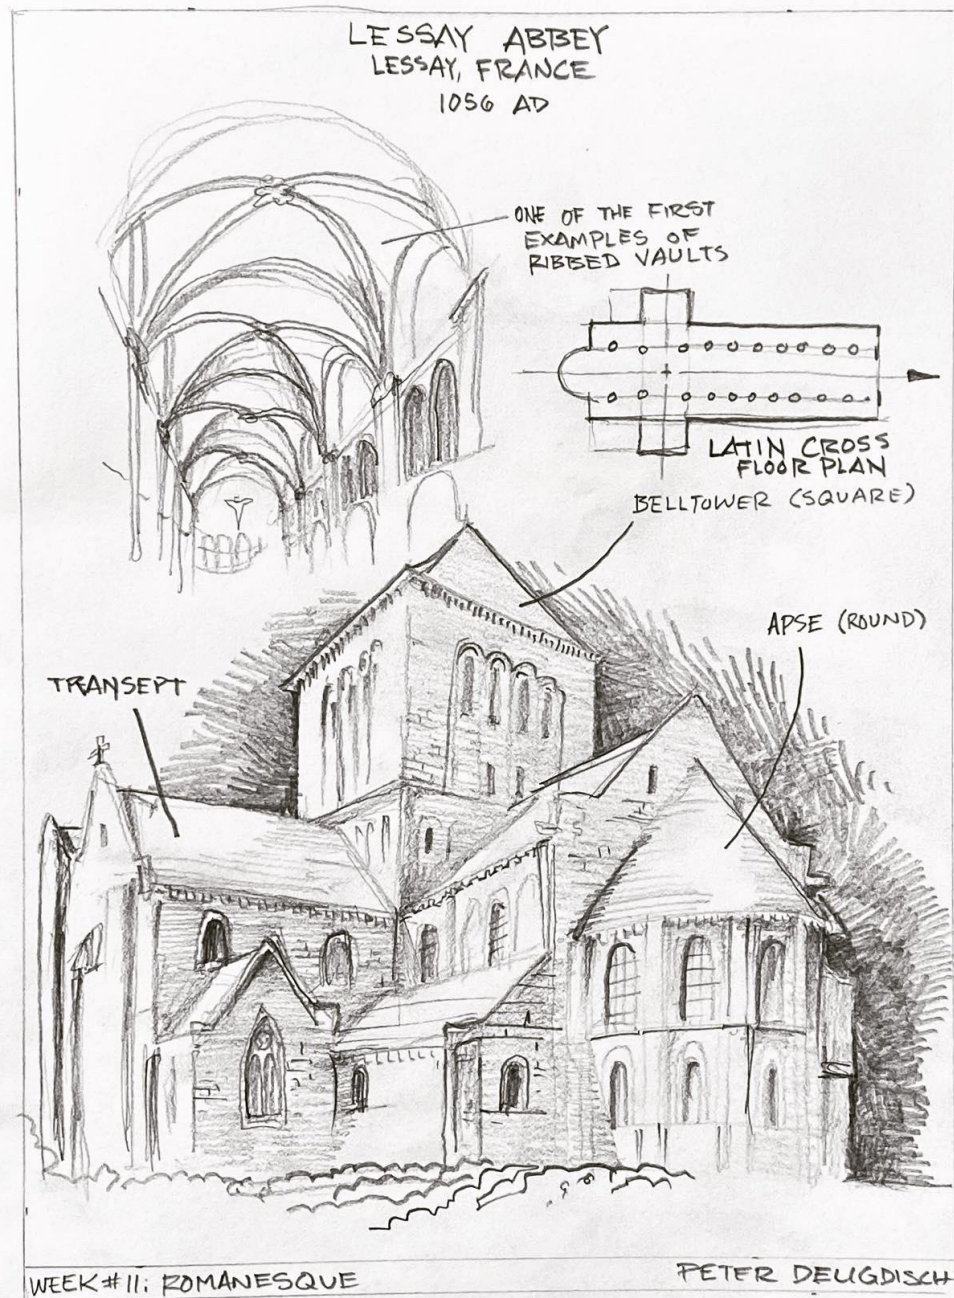 LESSAY ABBEY
LESSAY, FRANCE
1056 AD
ONE OF THE FIRST
EXAMPLES OF
RIBBED VAULTS
LATIN CROSS
FLOOR PLAN
BELLTOWER (SQUARE)
APSE (ROUND)
TRANSEPT
WEEK #11: ROMANESQUE
PETER DEUGDISCH